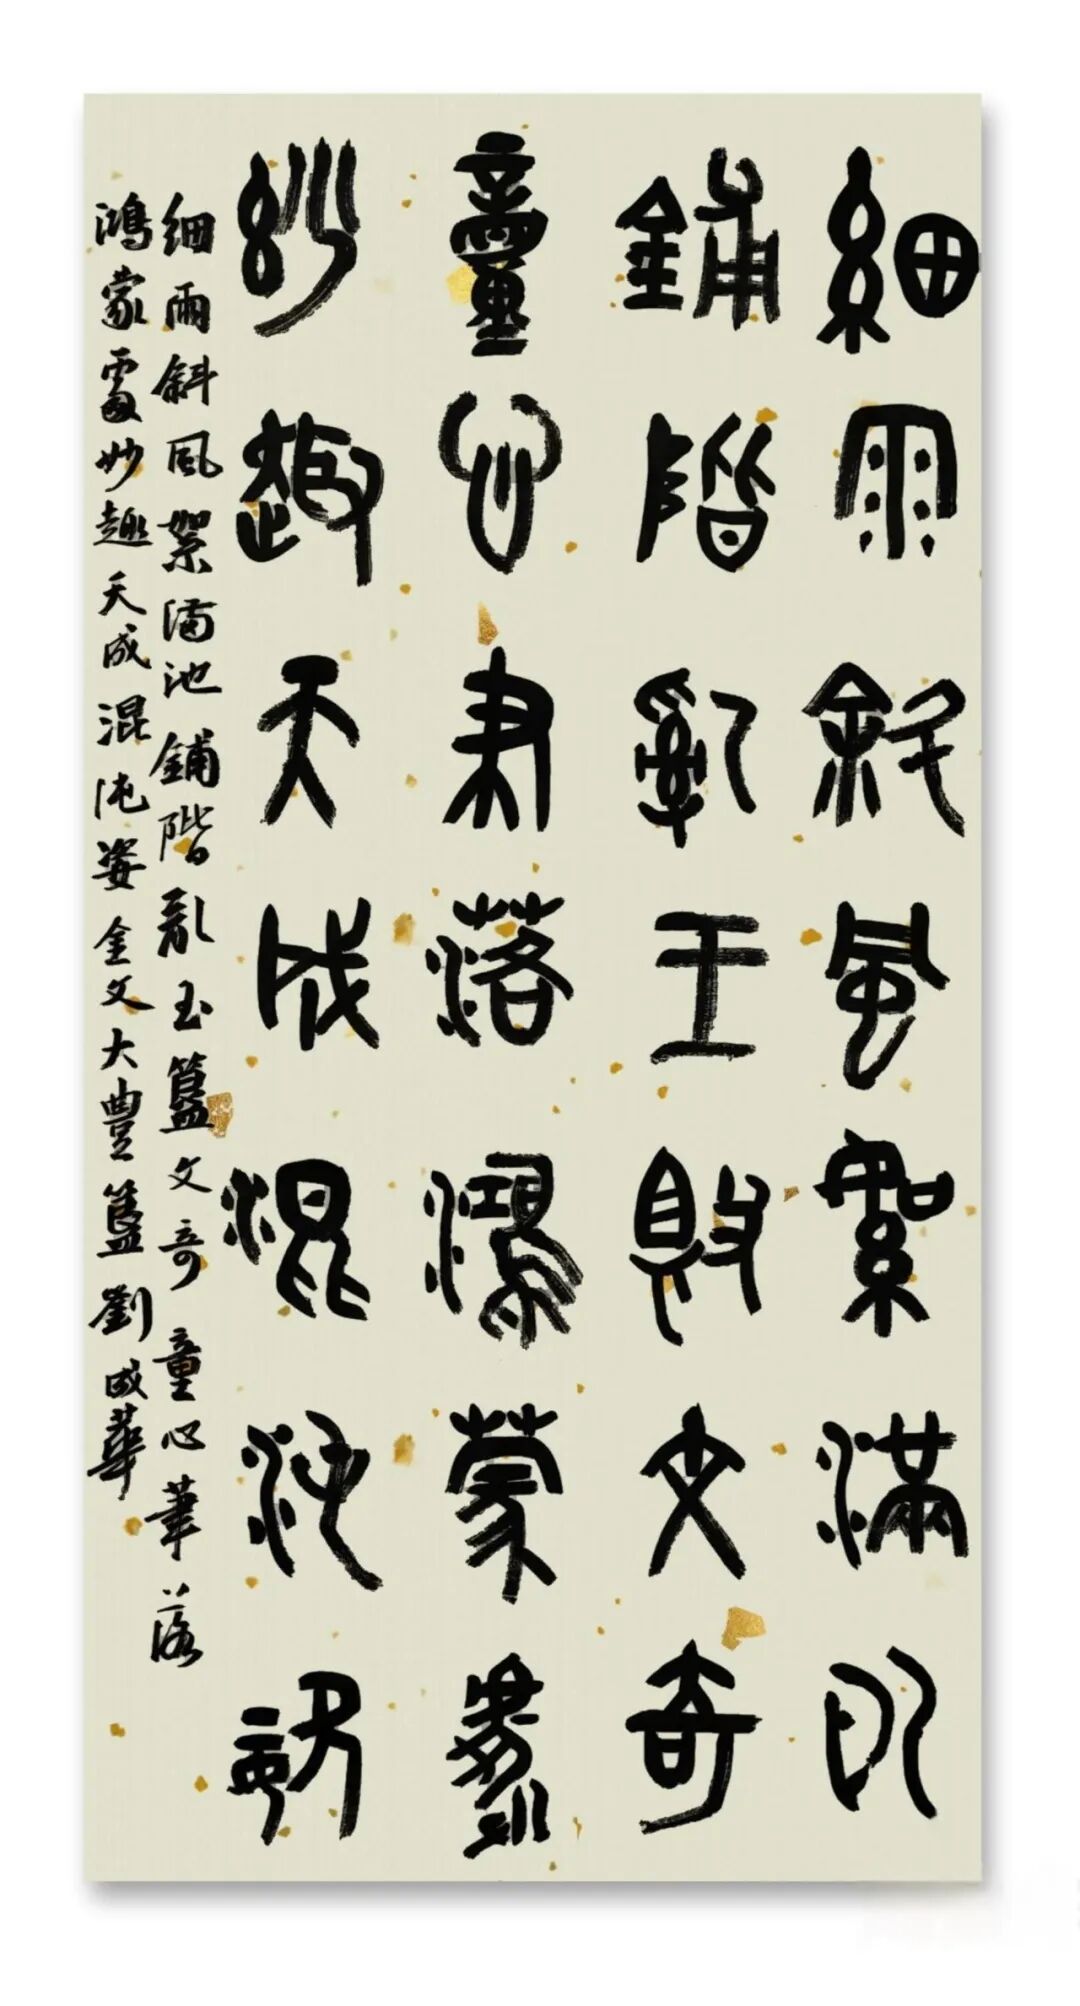 細雨斜風絮滿池
鋪階亂玉簋文奇
童心聿落鴻蒙處
妙趣天成混沌姿
細雨斜風絮滿池鋪階亂玉簋文奇童心筆落
鴻蒙處妙趣天成混沌姿金文大豐簋劉成華